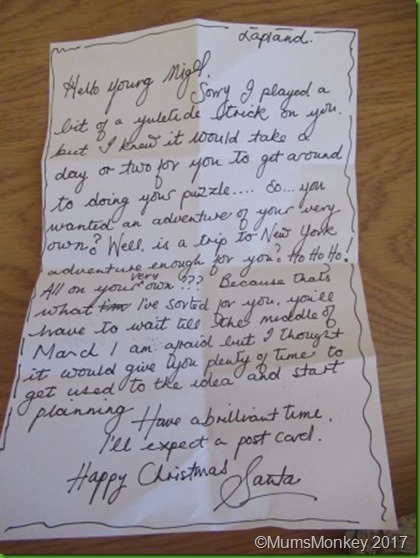 Lapland.
Hello young Nigel.
Sorry I played a
bit of a yuletide trick on you.
but I knew it would take a
day or two for you to get around
to doing your puzzle.... So... you
wanted an adventure of your very
own? Well, is a trip to New York
adventure enough for you? Ho Ho Ho!
All on your very own??? Because thats
what I've sorted for you, you'll
have to wait till the middle of
March I am afraid but I thought
it would give you plenty of time to
get used to the idea and start
planning
Have a brilliant time.
I'll expect a post card.
Happy Christmas
Santa
©MumsMonkey 2017